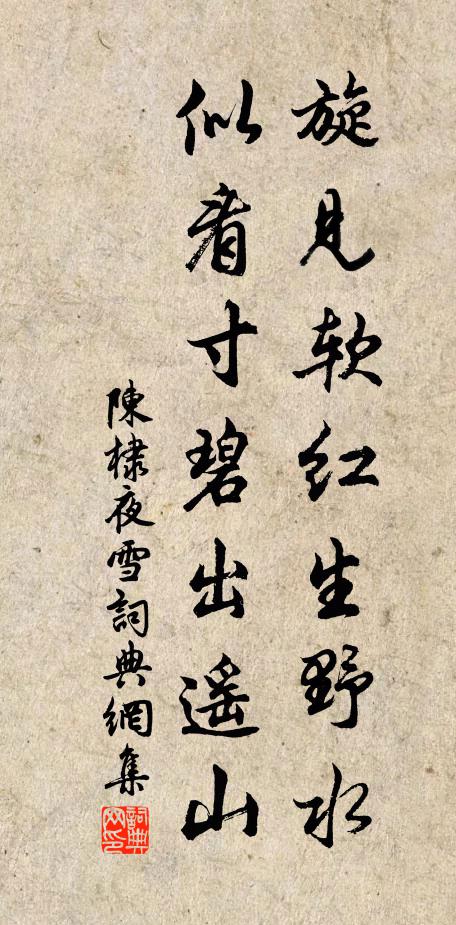 旋見軟紅生野水
似看寸碧出遥山
陳棣夜雪詞典網集
詞典网印